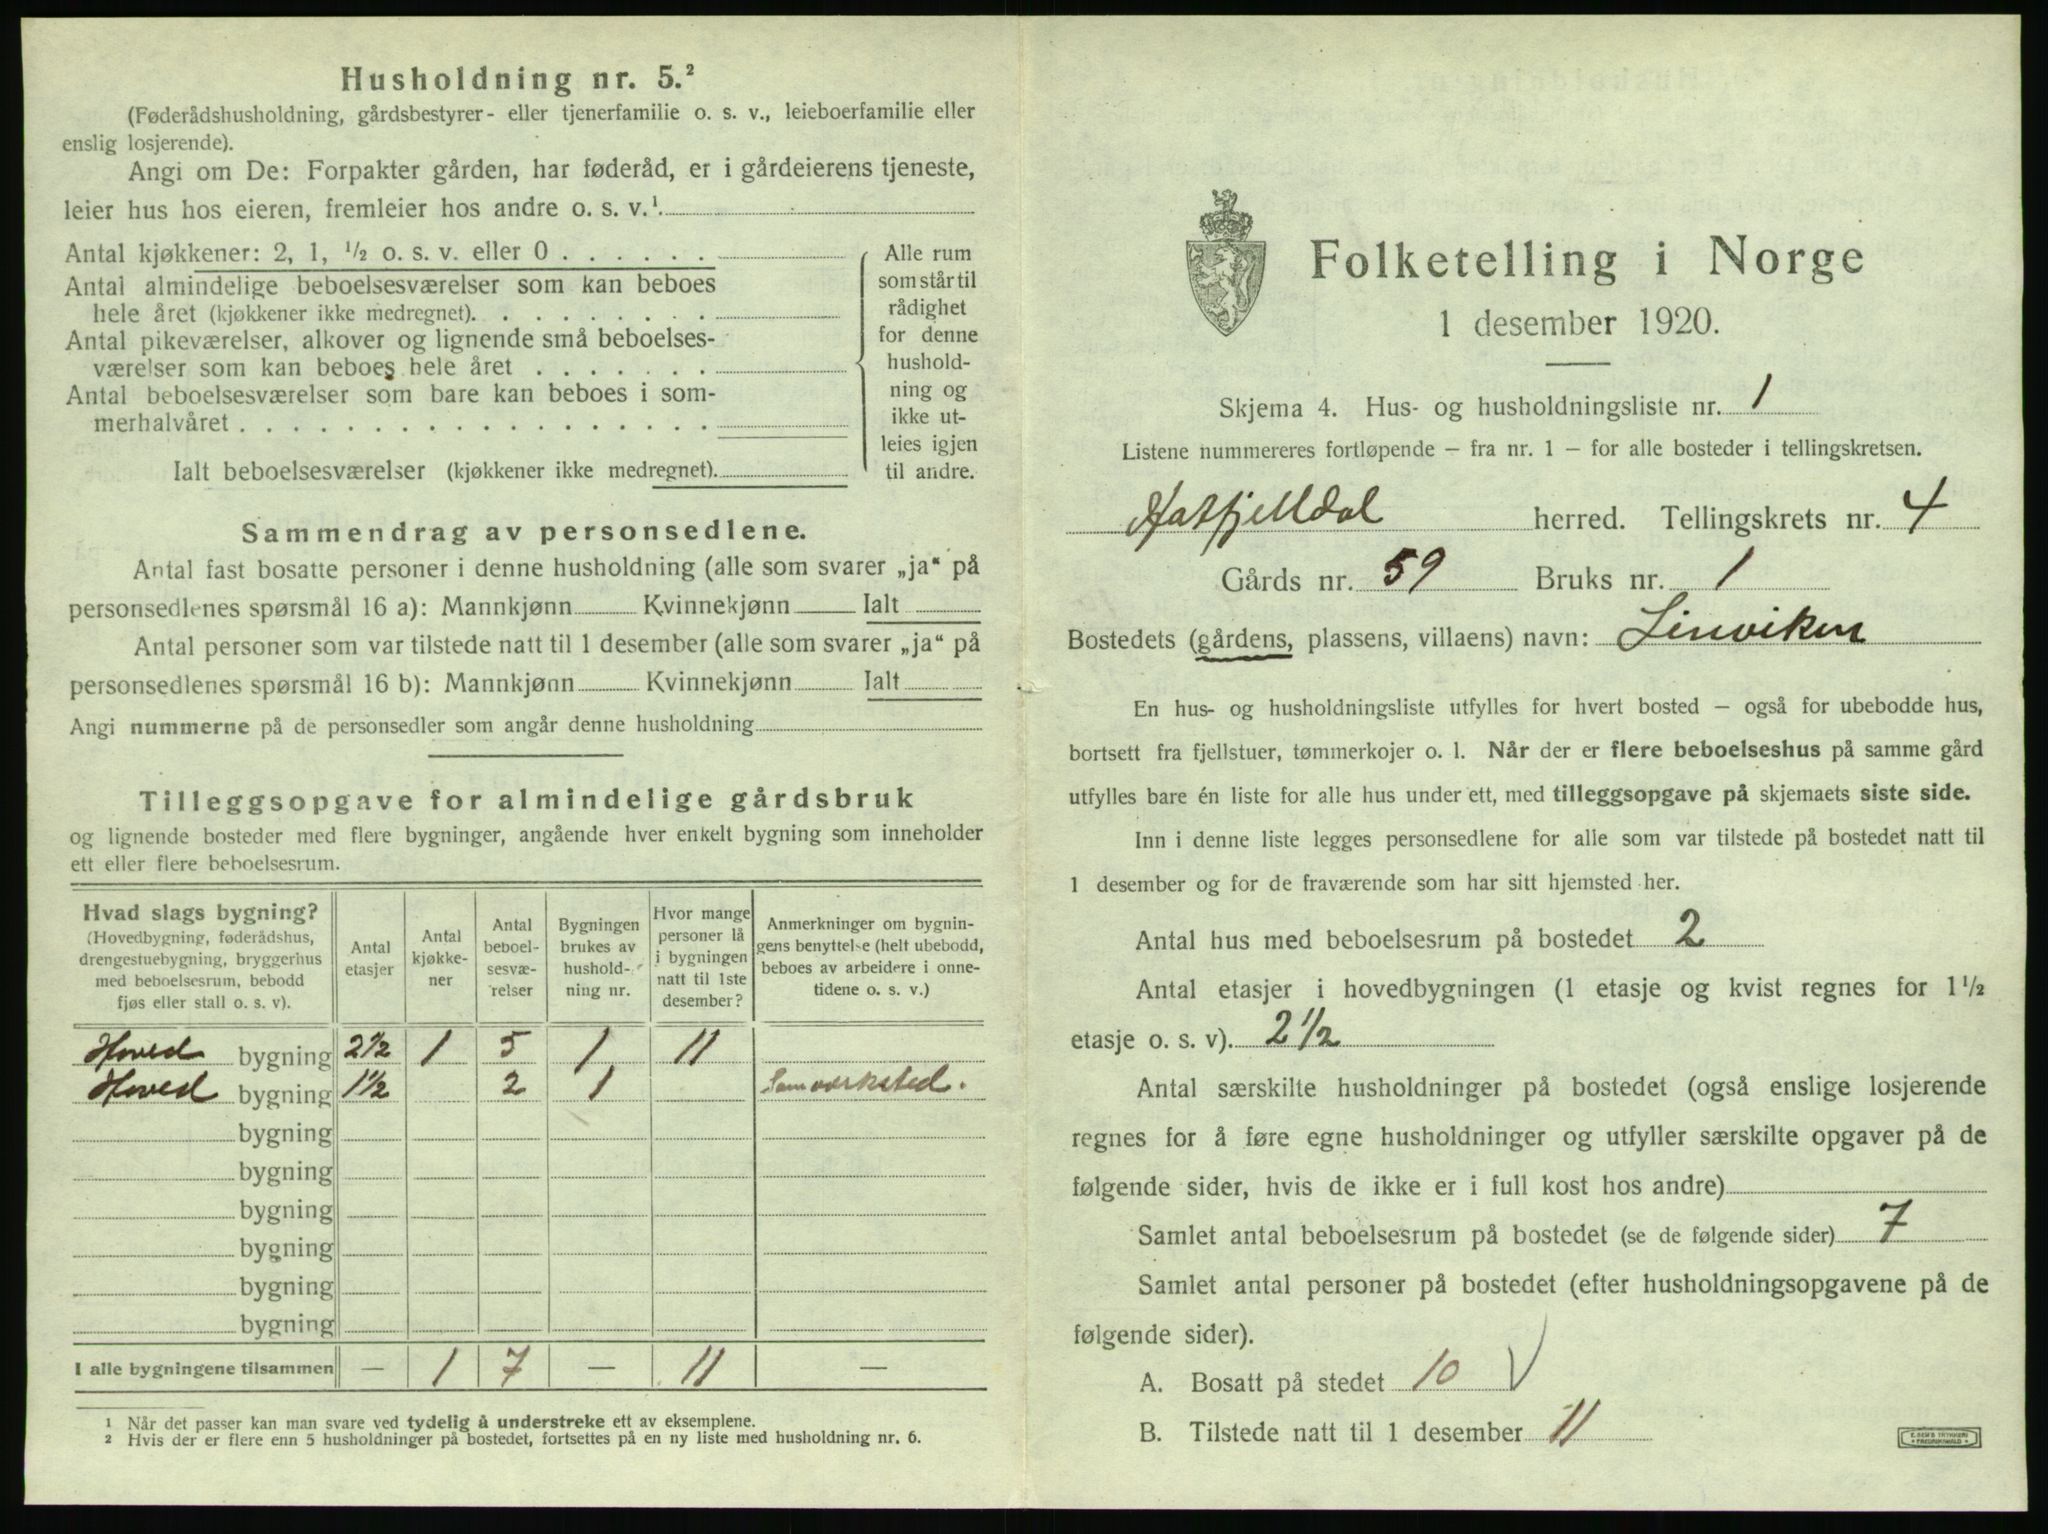 Husholdning nr. 5.²
(Føderådshusholdning, gårdsbestyrer- eller tjenerfamilie o. s. v., leieboerfamilie eller
enslig losjerende).
Angi om De: Forpakter gården, har føderåd, er i gårdeierens tjeneste,
leier hus hos eieren, fremleier hos andre o. s. v.¹
Antal kjøkkener: 2, 1, ½ o. s. v. eller 0 . . . . . .
Antal almindelige beboelsesværelser som kan beboes
hele året (kjøkkener ikke medregnet). . . . . . . . .
Antal pikeværelser, alkover og lignende små beboelses-
værelser som kan beboes hele året . . . . . . .
Antal beboelsesværelser som bare kan beboes i som-
merhalvåret . . . . . . . . . . . . . . . . . .
Ialt beboelsesværelser (kjøkkener ikke medregnet).
Alle rum
som står til
rådighet
for denne
hushold-
ning og
ikke ut-
leies igjen
til andre.
Sammendrag av personsedlene.
Antal fast bosatte personer i denne husholdning (alle som svarer „ja“ på
personsedlenes spørsmål 16 a): Mannkjønn Kvinnekjønn Ialt
Antal personer som var tilstede natt til 1 desember (alle som svarer „ja“ på
personsedlenes spørsmål 16 b): Mannkjønn Kvinnekjønn Ialt
Angi nummerne på de personsedler som angår denne husholdning
Tilleggsopgave for almindelige gårdsbruk
og lignende bosteder med flere bygninger, angående hver enkelt bygning som inneholder
ett eller flere beboelsesrum.
Hvad slags bygning?
(Hovedbygning, føderådshus,
drengestuebygning, bryggerhus
med beboelsesrum, bebodd
fjøs eller stall o. s. v).
Antal
etasjer
Antal
kjøkke-
ner
Antal
beboel-
sesvæ-
relser
Bygningen
brukes av
hushold-
ning nr.
Hvor mange
personer lå
i bygningen
natt til 1ste
desember?
Anmerkninger om bygnin-
gens benyttelse (helt ubebodd,
beboes av arbeidere i onne-
tidene o. s. v.)
Hoved bygning 2½ 1 5 1 11
Hoved bygning 1½ 2 1 Som verksted.
bygning
bygning
bygning
bygning
bygning
bygning
I alle bygningene tilsammen — 1 7 — 11 —
¹ Når det passer kan man svare ved tydelig å understreke ett av eksemplene.
² Hvis der er flere enn 5 husholdninger på bostedet, fortsettes på en ny liste med husholdning nr. 6.
Folketelling i Norge
1 desember 1920.
Skjema 4. Hus- og husholdningsliste nr. 1
Listene nummereres fortløpende – fra nr. 1 – for alle bosteder i tellingskretsen.
Hatfjelldal herred. Tellingskrets nr. 4
Gårds nr. 59 Bruks nr. 1
Bostedets (gårdens, plassens, villaens) navn: Linviken
En hus- og husholdningsliste utfylles for hvert bosted – også for ubebodde hus,
bortsett fra fjellstuer, tømmerkojer o. l. Når der er flere beboelseshus på samme gård
utfylles bare én liste for alle hus under ett, med tilleggsopgave på skjemaets siste side.
Inn i denne liste legges personsedlene for alle som var tilstede på bostedet natt til
1 desember og for de fraværende som har sitt hjemsted her.
Antal hus med beboelsesrum på bostedet 2
Antal etasjer i hovedbygningen (1 etasje og kvist regnes for 1½
etasje o. s. v). 2 1/2
Antal særskilte husholdninger på bostedet (også enslige losjerende
regnes for å føre egne husholdninger og utfyller særskilte opgaver på de
følgende sider, hvis de ikke er i full kost hos andre)
Samlet antal beboelsesrum på bostedet (se de følgende sider) 7
Samlet antal personer på bostedet (efter husholdningsopgavene på de
følgende sider).
A. Bosatt på stedet 10
B. Tilstede natt til 1 desember 11